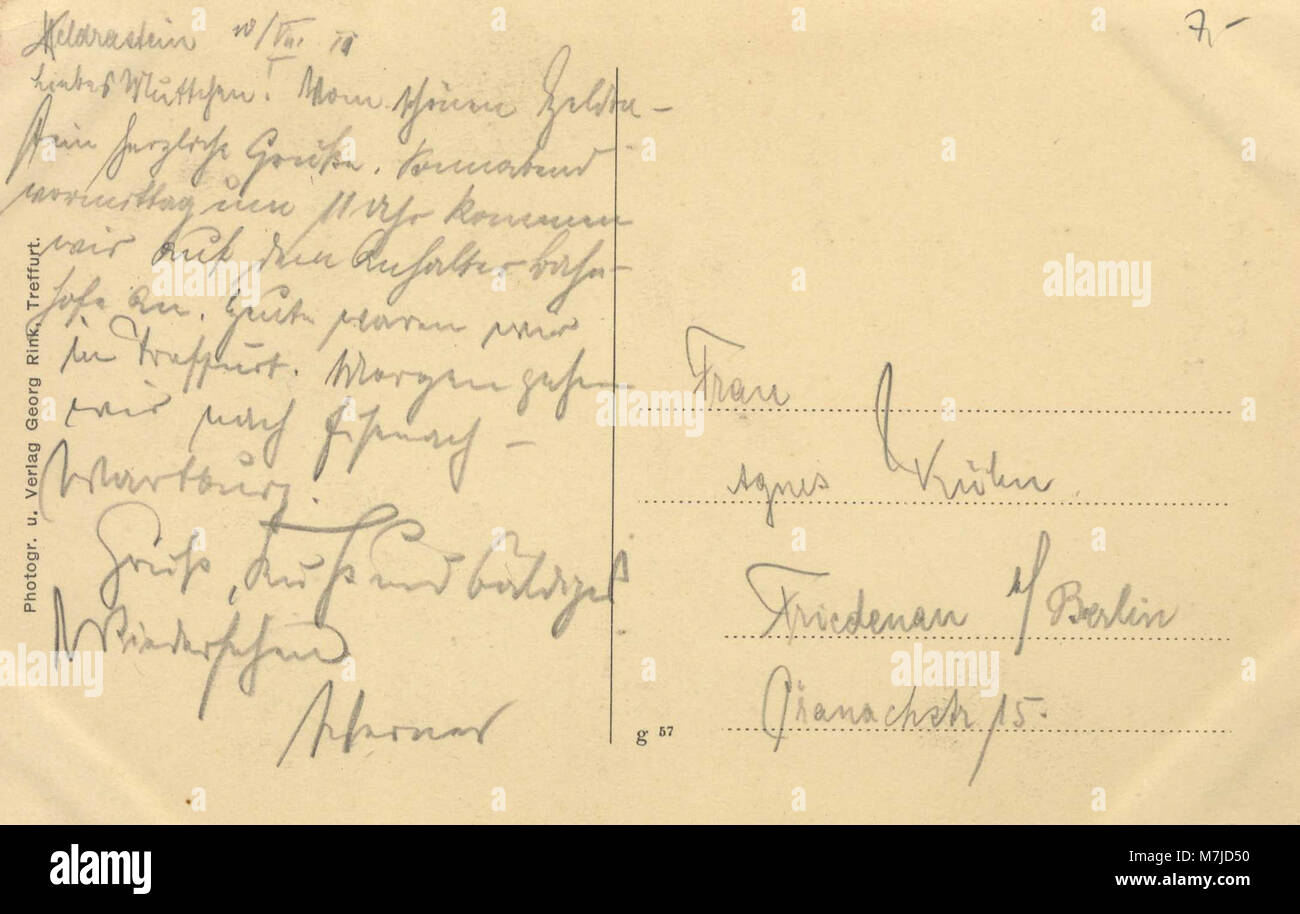 Heldrastein
Liebes Muttchen! Vom schönen Heldra-
stein herzliche Grüße. Sonnabend
vormittag um 11 Uhr kommen
wir auf dem Anhalter Bahn-
hofe an. Heute waren wir
in Treffurt. Morgen gehen
wir nach Eisenach –
Wartburg.
Gruß, Kuß und baldiges
Wiedersehen
Werner
Photogr. u. Verlag Georg Rink, Treffurt.
Frau
Agnes Kühn
Friedenau b/ Berlin
Cranachstr 15.
g 57
alamy
Image ID: M7JD50
www.alamy.com